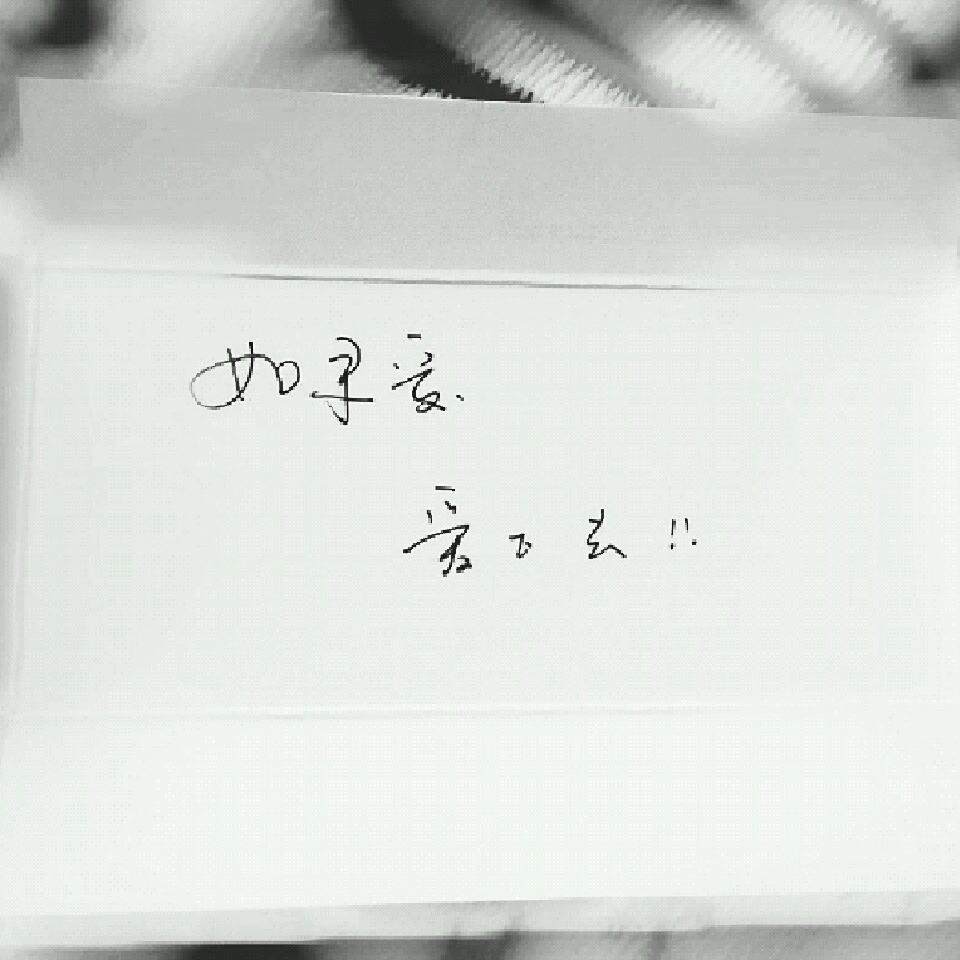 如果爱
爱下去!!